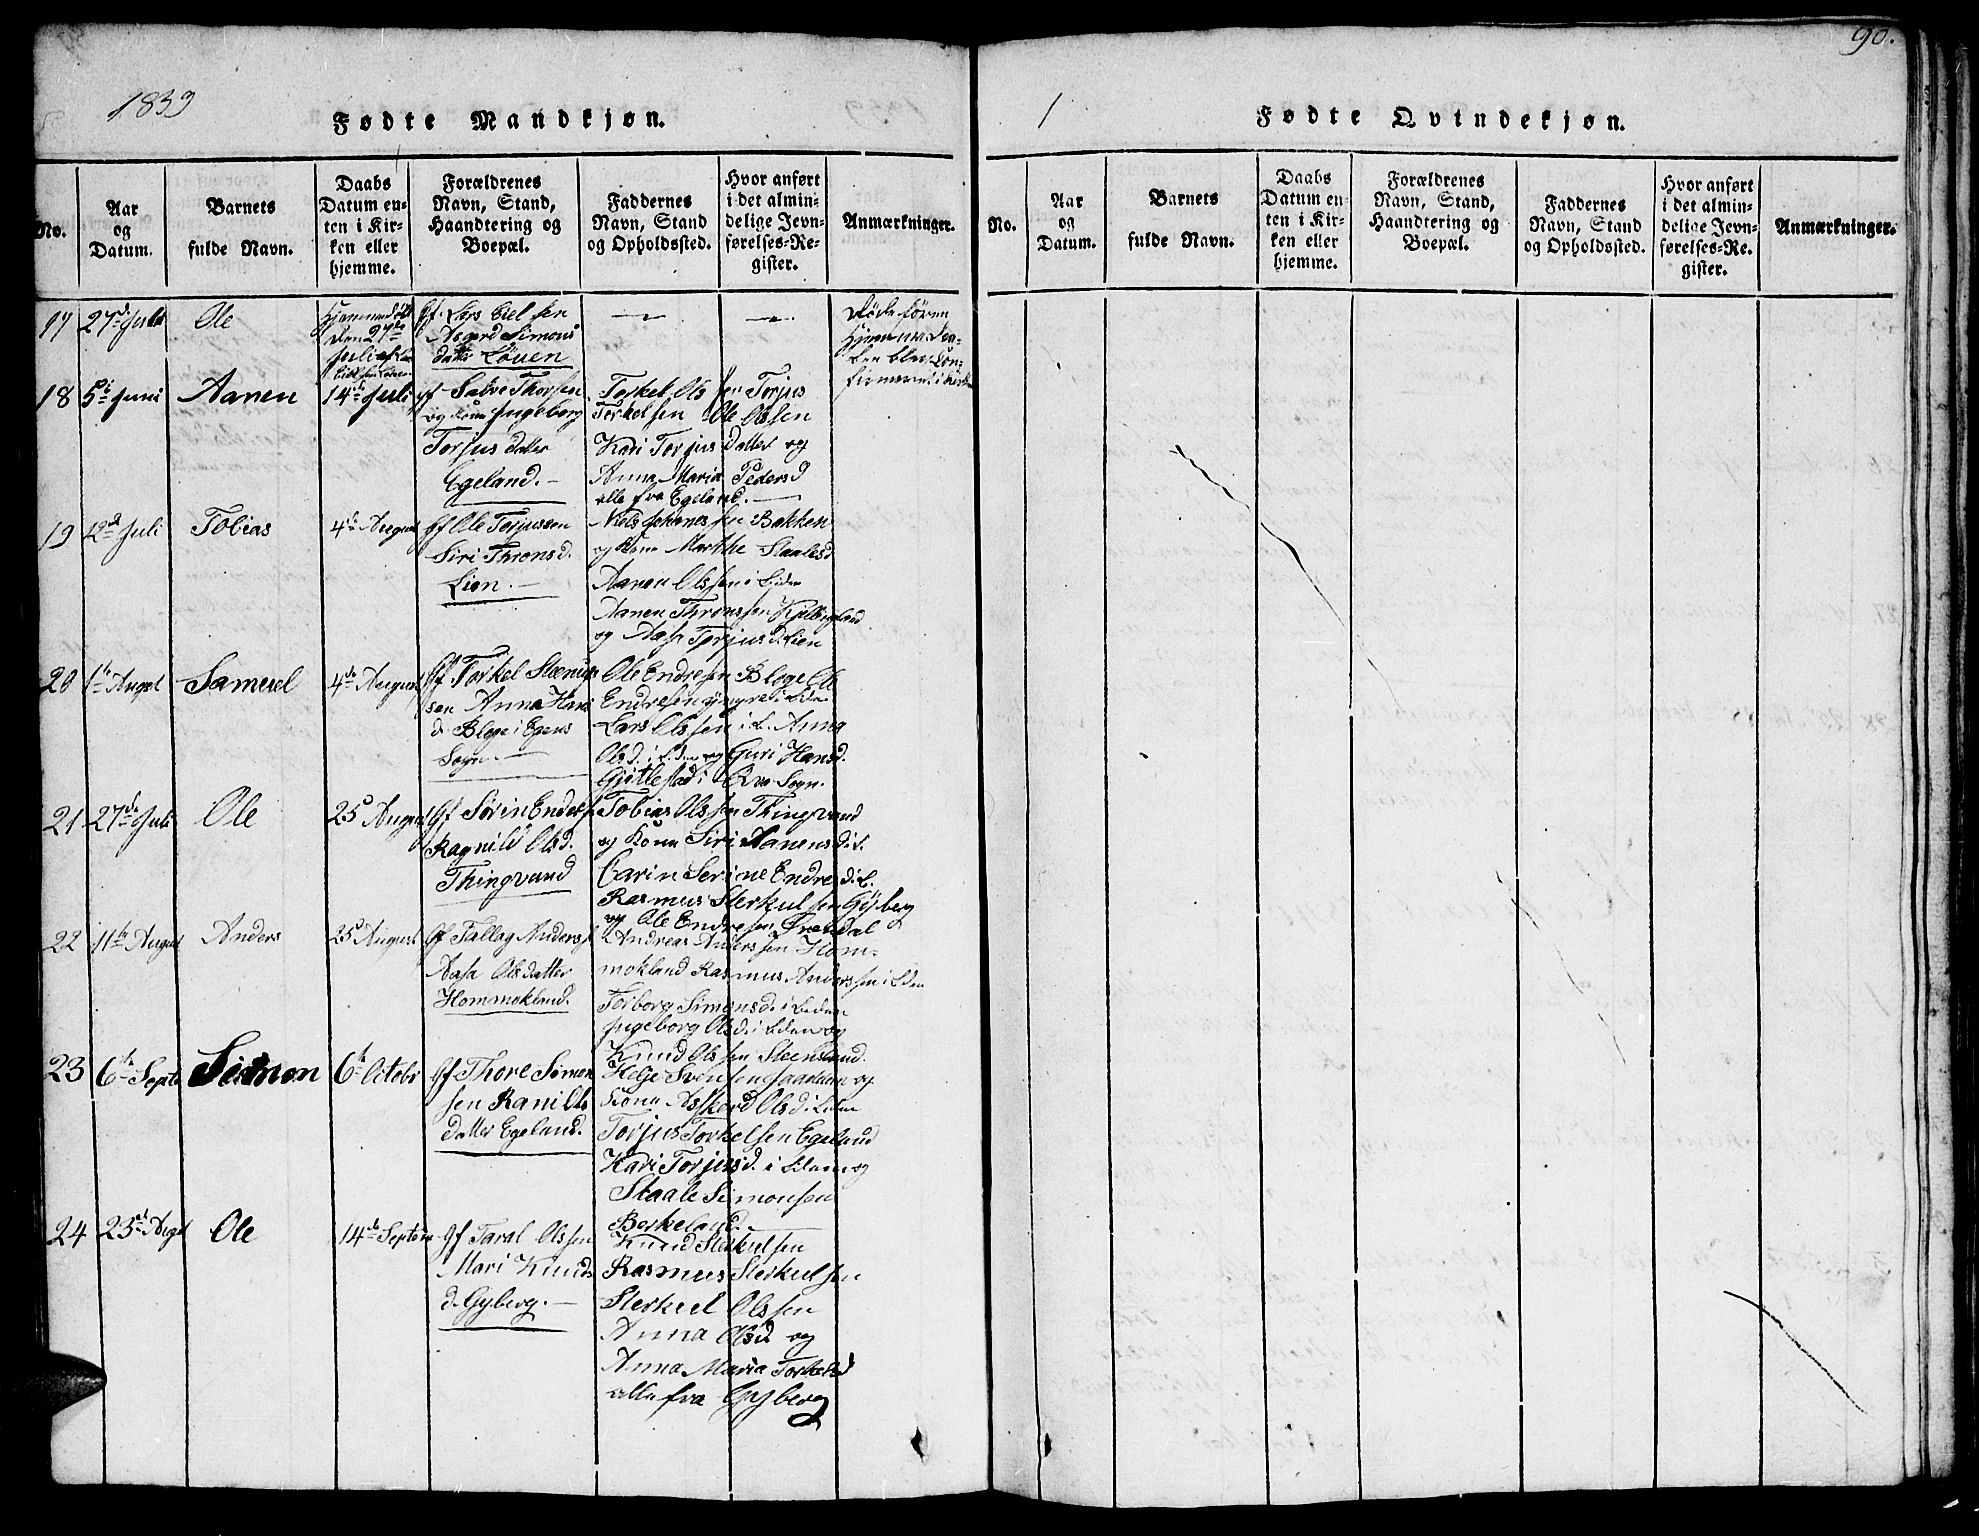 90.
1839
Fødte Mandkjøn.
No.
Aar
og
Datum.
Barnets
fulde Navn.
Daabs
Datum en-
ten i Kir-
ken eller
hjemme.
Forældrenes
Navn, Stand,
Haandtering og
Boepæl.
Faddernes
Navn, Stand
og Opholdssted.
Hvor anført
i det almin-
delige Jevn-
førelses-Re-
gister.
Anmærkninger.
27de Juli
Ole
Hjemmedøbt
den 27de
Juli af
gf. Lars Eielsen
Asgerd Simons
datter Løuen
Døde føren
18
5te Juni
Aanen
14de Juli
gf Salve Thorsen
og Kone Ingeborg
Torjus datter
Egeland.
Torkel Olssen Torjus
Torkelsen Ole Olssen
Kari Torjus Datter og
Anna Maria Pedersd
alle fra Egeland.
19
12te Juli
Tobias
4de August
gf Ole Torjussen
Siri Thronsd.
Lien.
Niels Johannessen Bakken
og Kone Marthe Staalesd
Aanen Olssen i Liden
Aanen Thronssen
og Aasa Torjusd. Lien
20
1te Augst
Samuel
4de August
gf Torkel Steenis
sen Anna Hans
d. Bloge i Egens
Sogn.
Ole Endresen Bloge Ole
Endresen yngre i
Lars Olssen i L. Anna
Olsd. i Liden og Guri Hansd.
Gjetlestad i Qvas Sogn.
21
27de Juli
Ole
25 August
gf Sørin Endres
Ragnild Olsd.
Thingvand
Tobias Olssen Thingvand
og Kone Siri Aanensd i L.
Carin Serine Endresd. i L.
Rasmus Sterkulsen Gyberg
og Ole Endresen Øresdal
22
11te August
Anders
25 August
gf Tallag Anderss
Aasa Olsdatter
Hommokland.
Andreas Anderssen Hom-
mokland Rasmus Anderssen i Liden
Torborg Simonsd. i Liden
Ingeborg Olsd. i Liden og
Knud Olssen Steensland.
23
6te Septe
Simon
6te Octobr
gf Thore Simon
sen Rani Ols
datter Egeland.
Helje Svensen og
Kone Asskerd Olsd. i Liden
Torjus Torkelsen Egeland
Kari Torjusd. i Liden og
Staale Simonsen
Berkeland.
24
23de Augst
Ole
14de Septem
gf Taral Olssen
Mari Knuds
d. Gyberg.
Knud Sterkulsen
Rasmus Sterkulsen
Sterkul Olssen
Anna Olsd og
Anna Maria Torkelsd
alle fra Gyberg
Fødte Qvindekjøn.
No.
Aar
og
Datum.
Barnets
fulde Navn.
Daabs
Datum en-
ten i Kir-
ken eller
hjemme.
Forældrenes
Navn, Stand,
Haandtering og
Boepæl.
Faddernes
Navn, Stand
og Opholdssted.
Hvor anført
i det almin-
delige Jevn-
førelses-Re-
gister.
Anmærkninger.